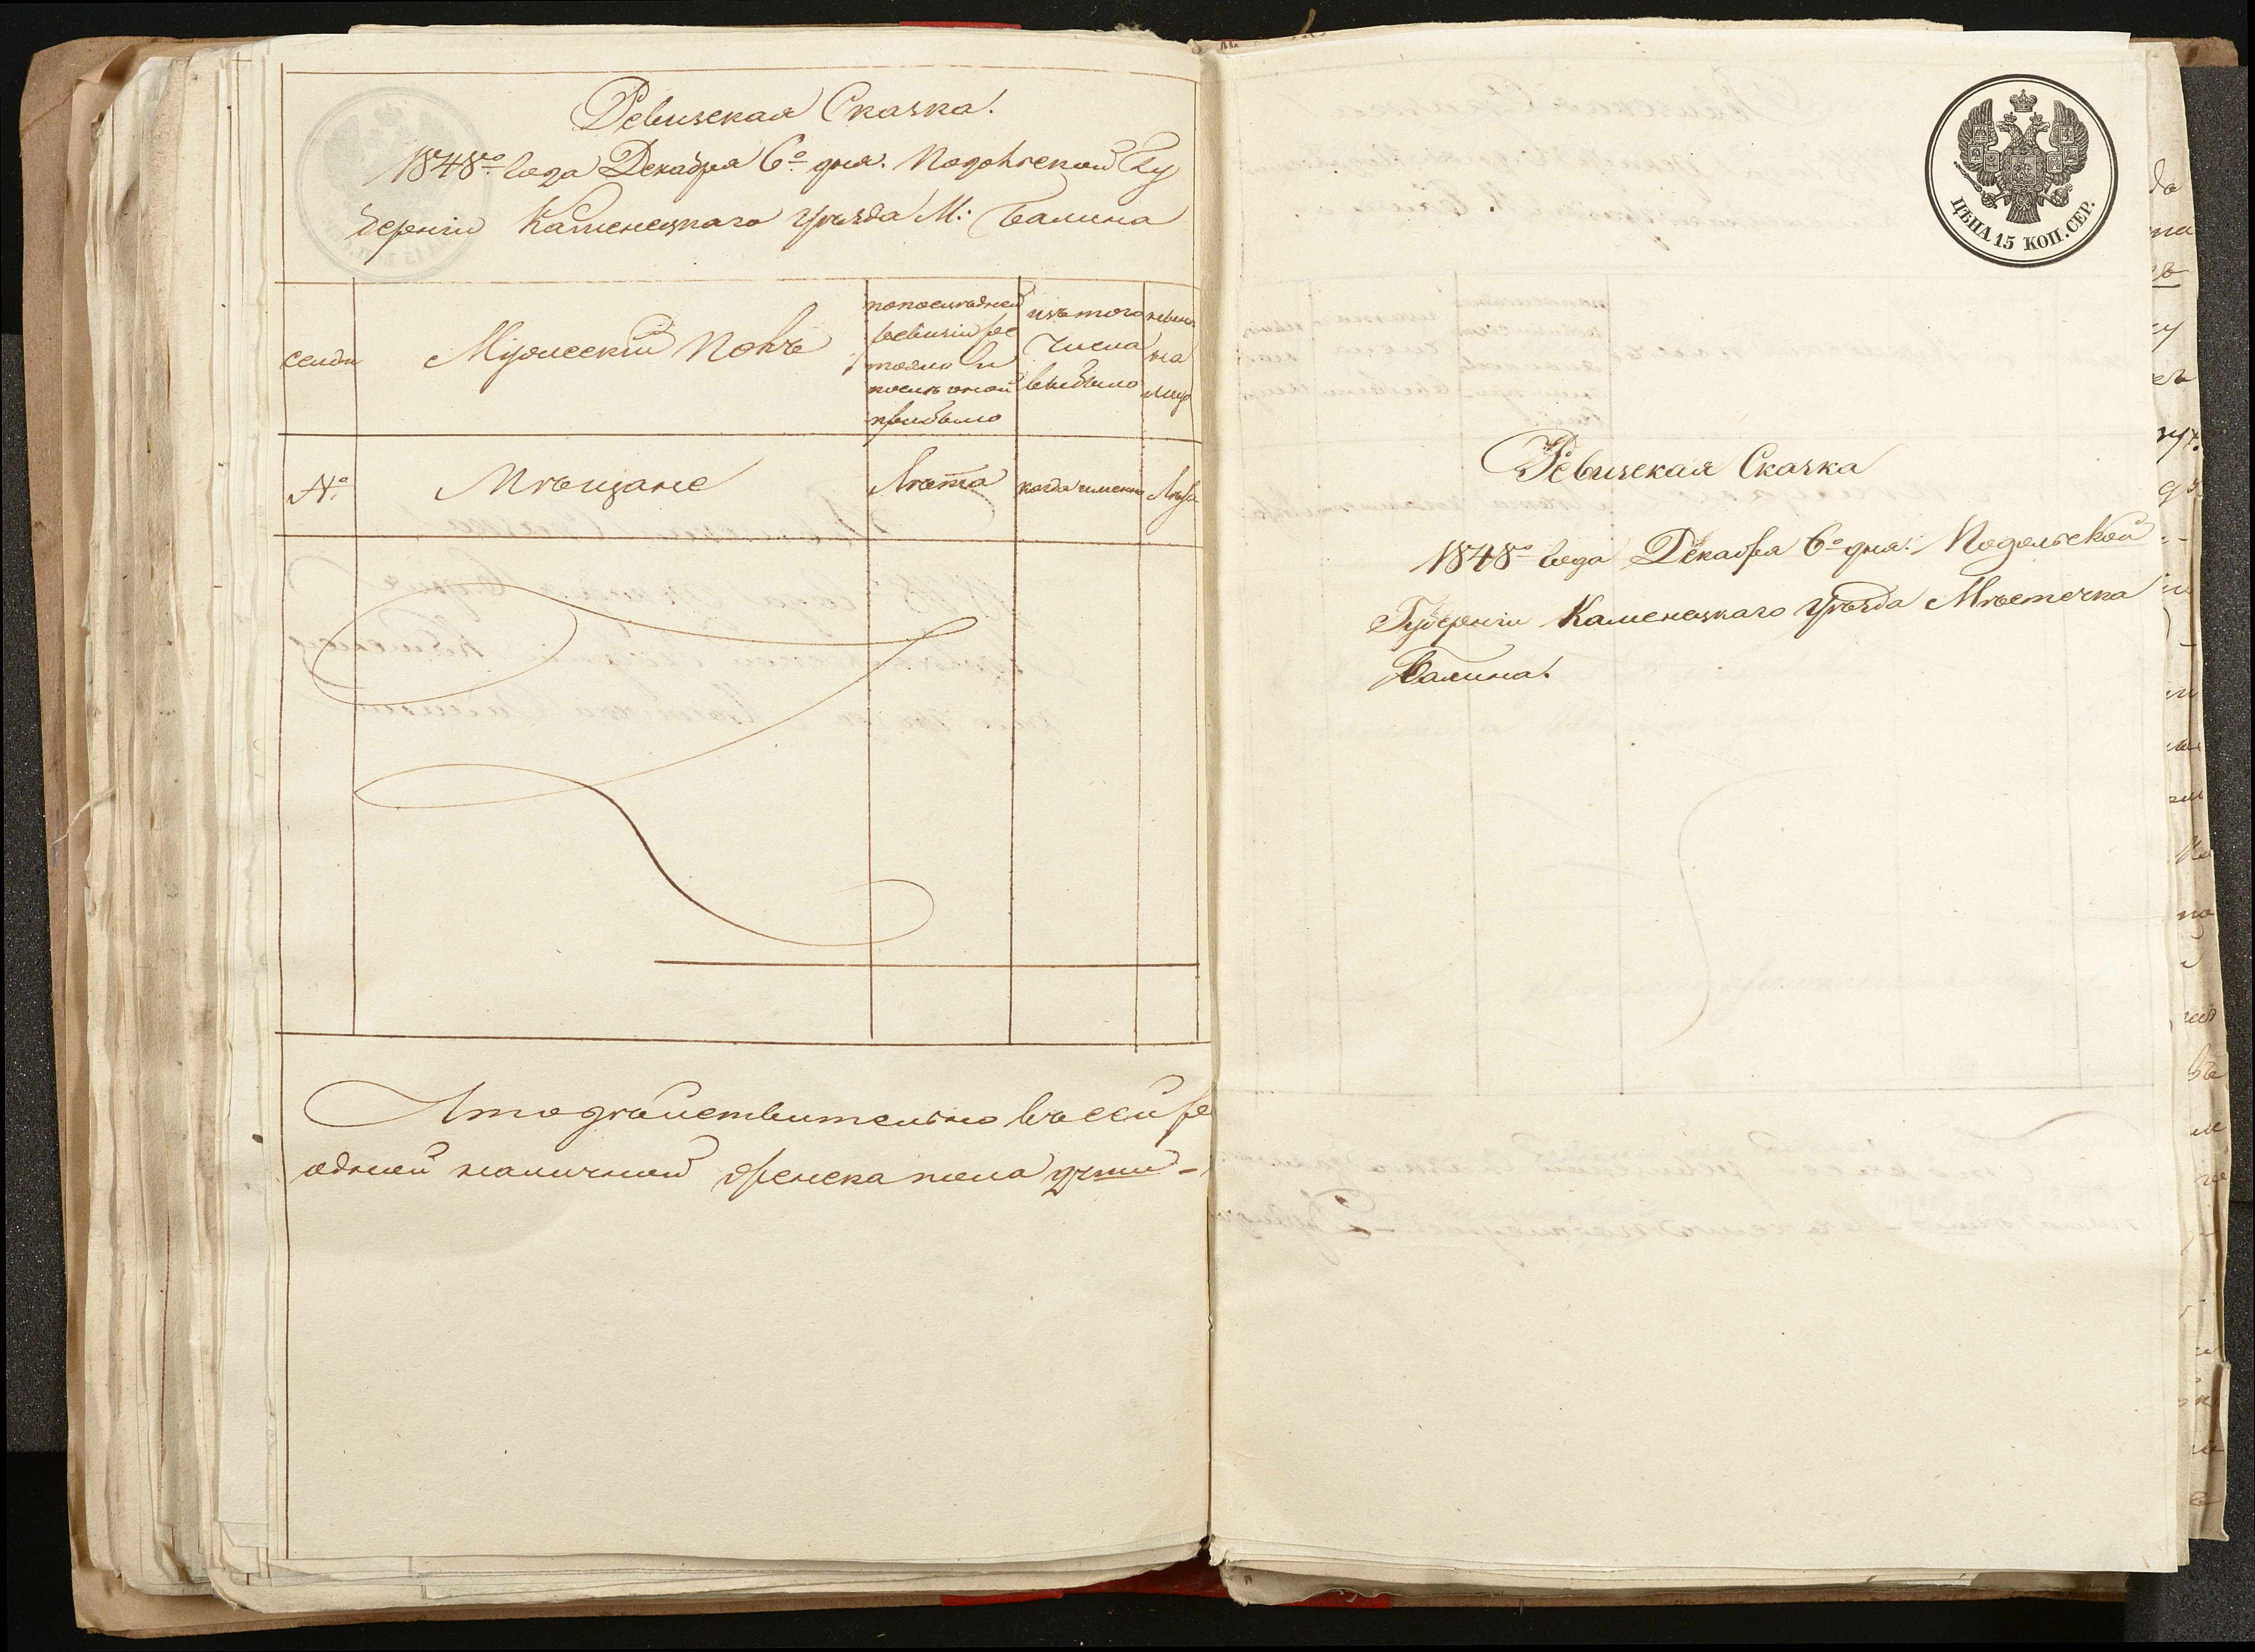 Ревизская Сказка.
1848го года Декабря 6о дня. Подольской Гу
берніи Каменецкаго Уѣзда М: Балина
семьи
Мужескій Полъ
попоследней
ревизіи сос
тояло и
послѣ оной
прибыло
изътого
числа
выбыло
ныне
на
лицо
№
Мѣщане
Лѣта
когда именно
Лѣта
Что дѣйствительно въ сей ре
одной наличной женска пола души
ЦѢНА 15 КОП. СЕР.
Ревизская Сказка
1848о года Декабря 6о дня. Подольской
Губерніи Каменецкаго Уѣзда Мѣстечка
Балина.